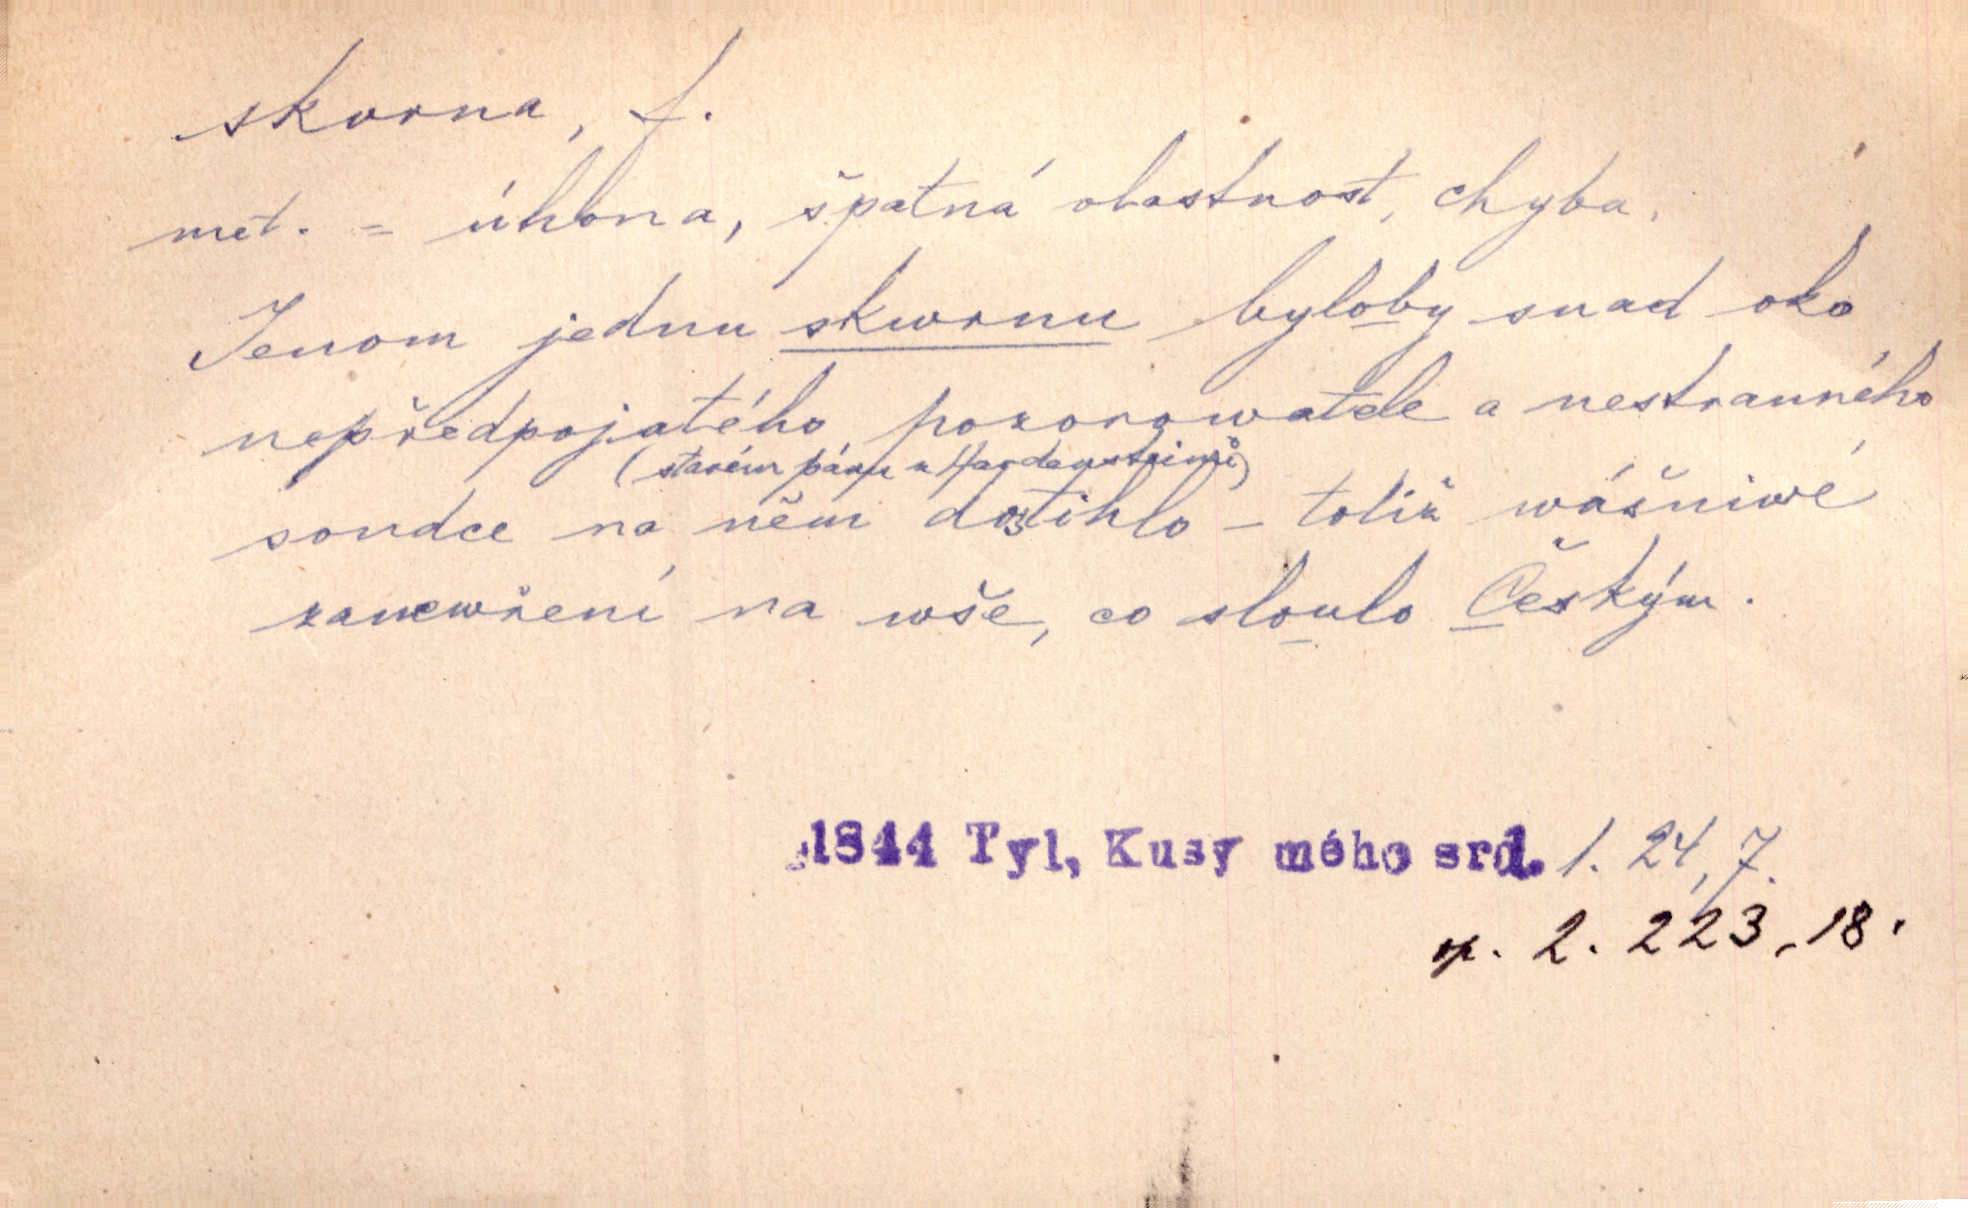 skvrna, f.
met. = úhona, špatná vlastnost, chyba.
Jenom jednu skwrnu byloby snad oko
nepředpojatého pozorowatele a nestranného
(starém pánu z
saudce na něm dostihlo – totiž wášniwé
zanewření na wše, co slaulo Českým.
1844 Tyl, Kusy mého srd. 1. 24, 7.
2. 223, 18.